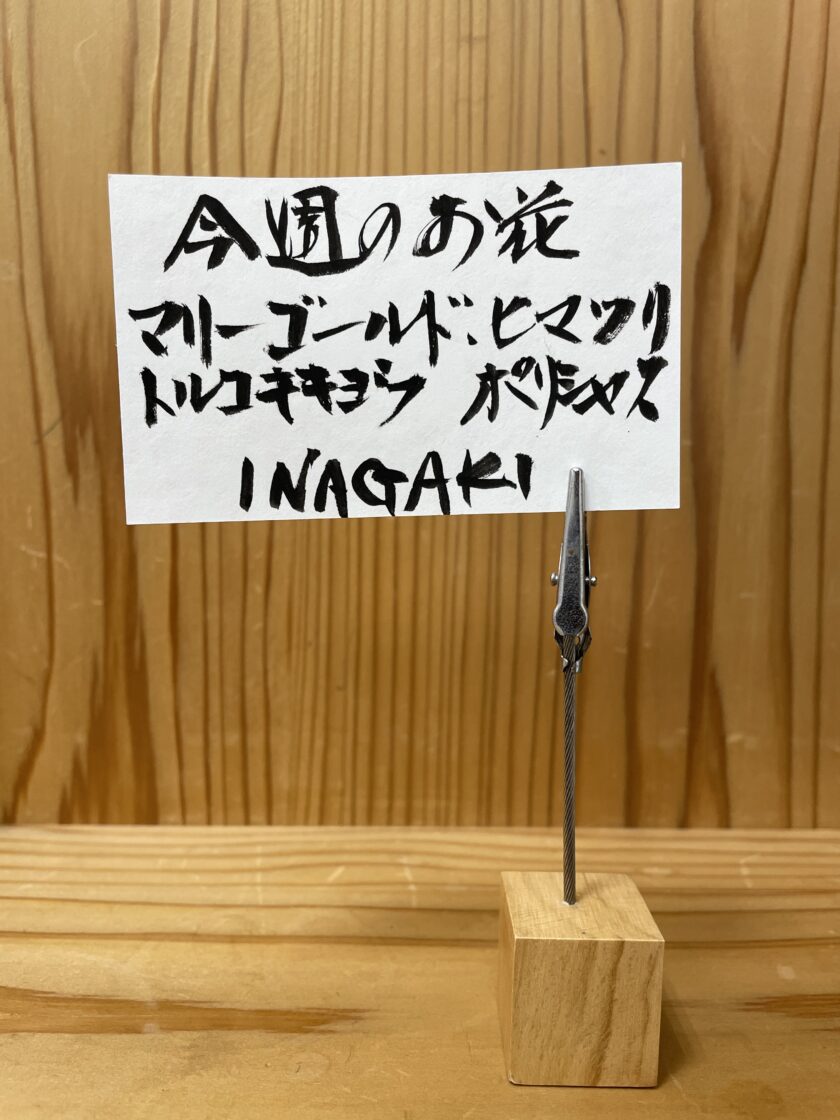 今週のお花
マリーゴールド、ヒマワリ
トルコキキョウ ポリシャス
INAGAKI